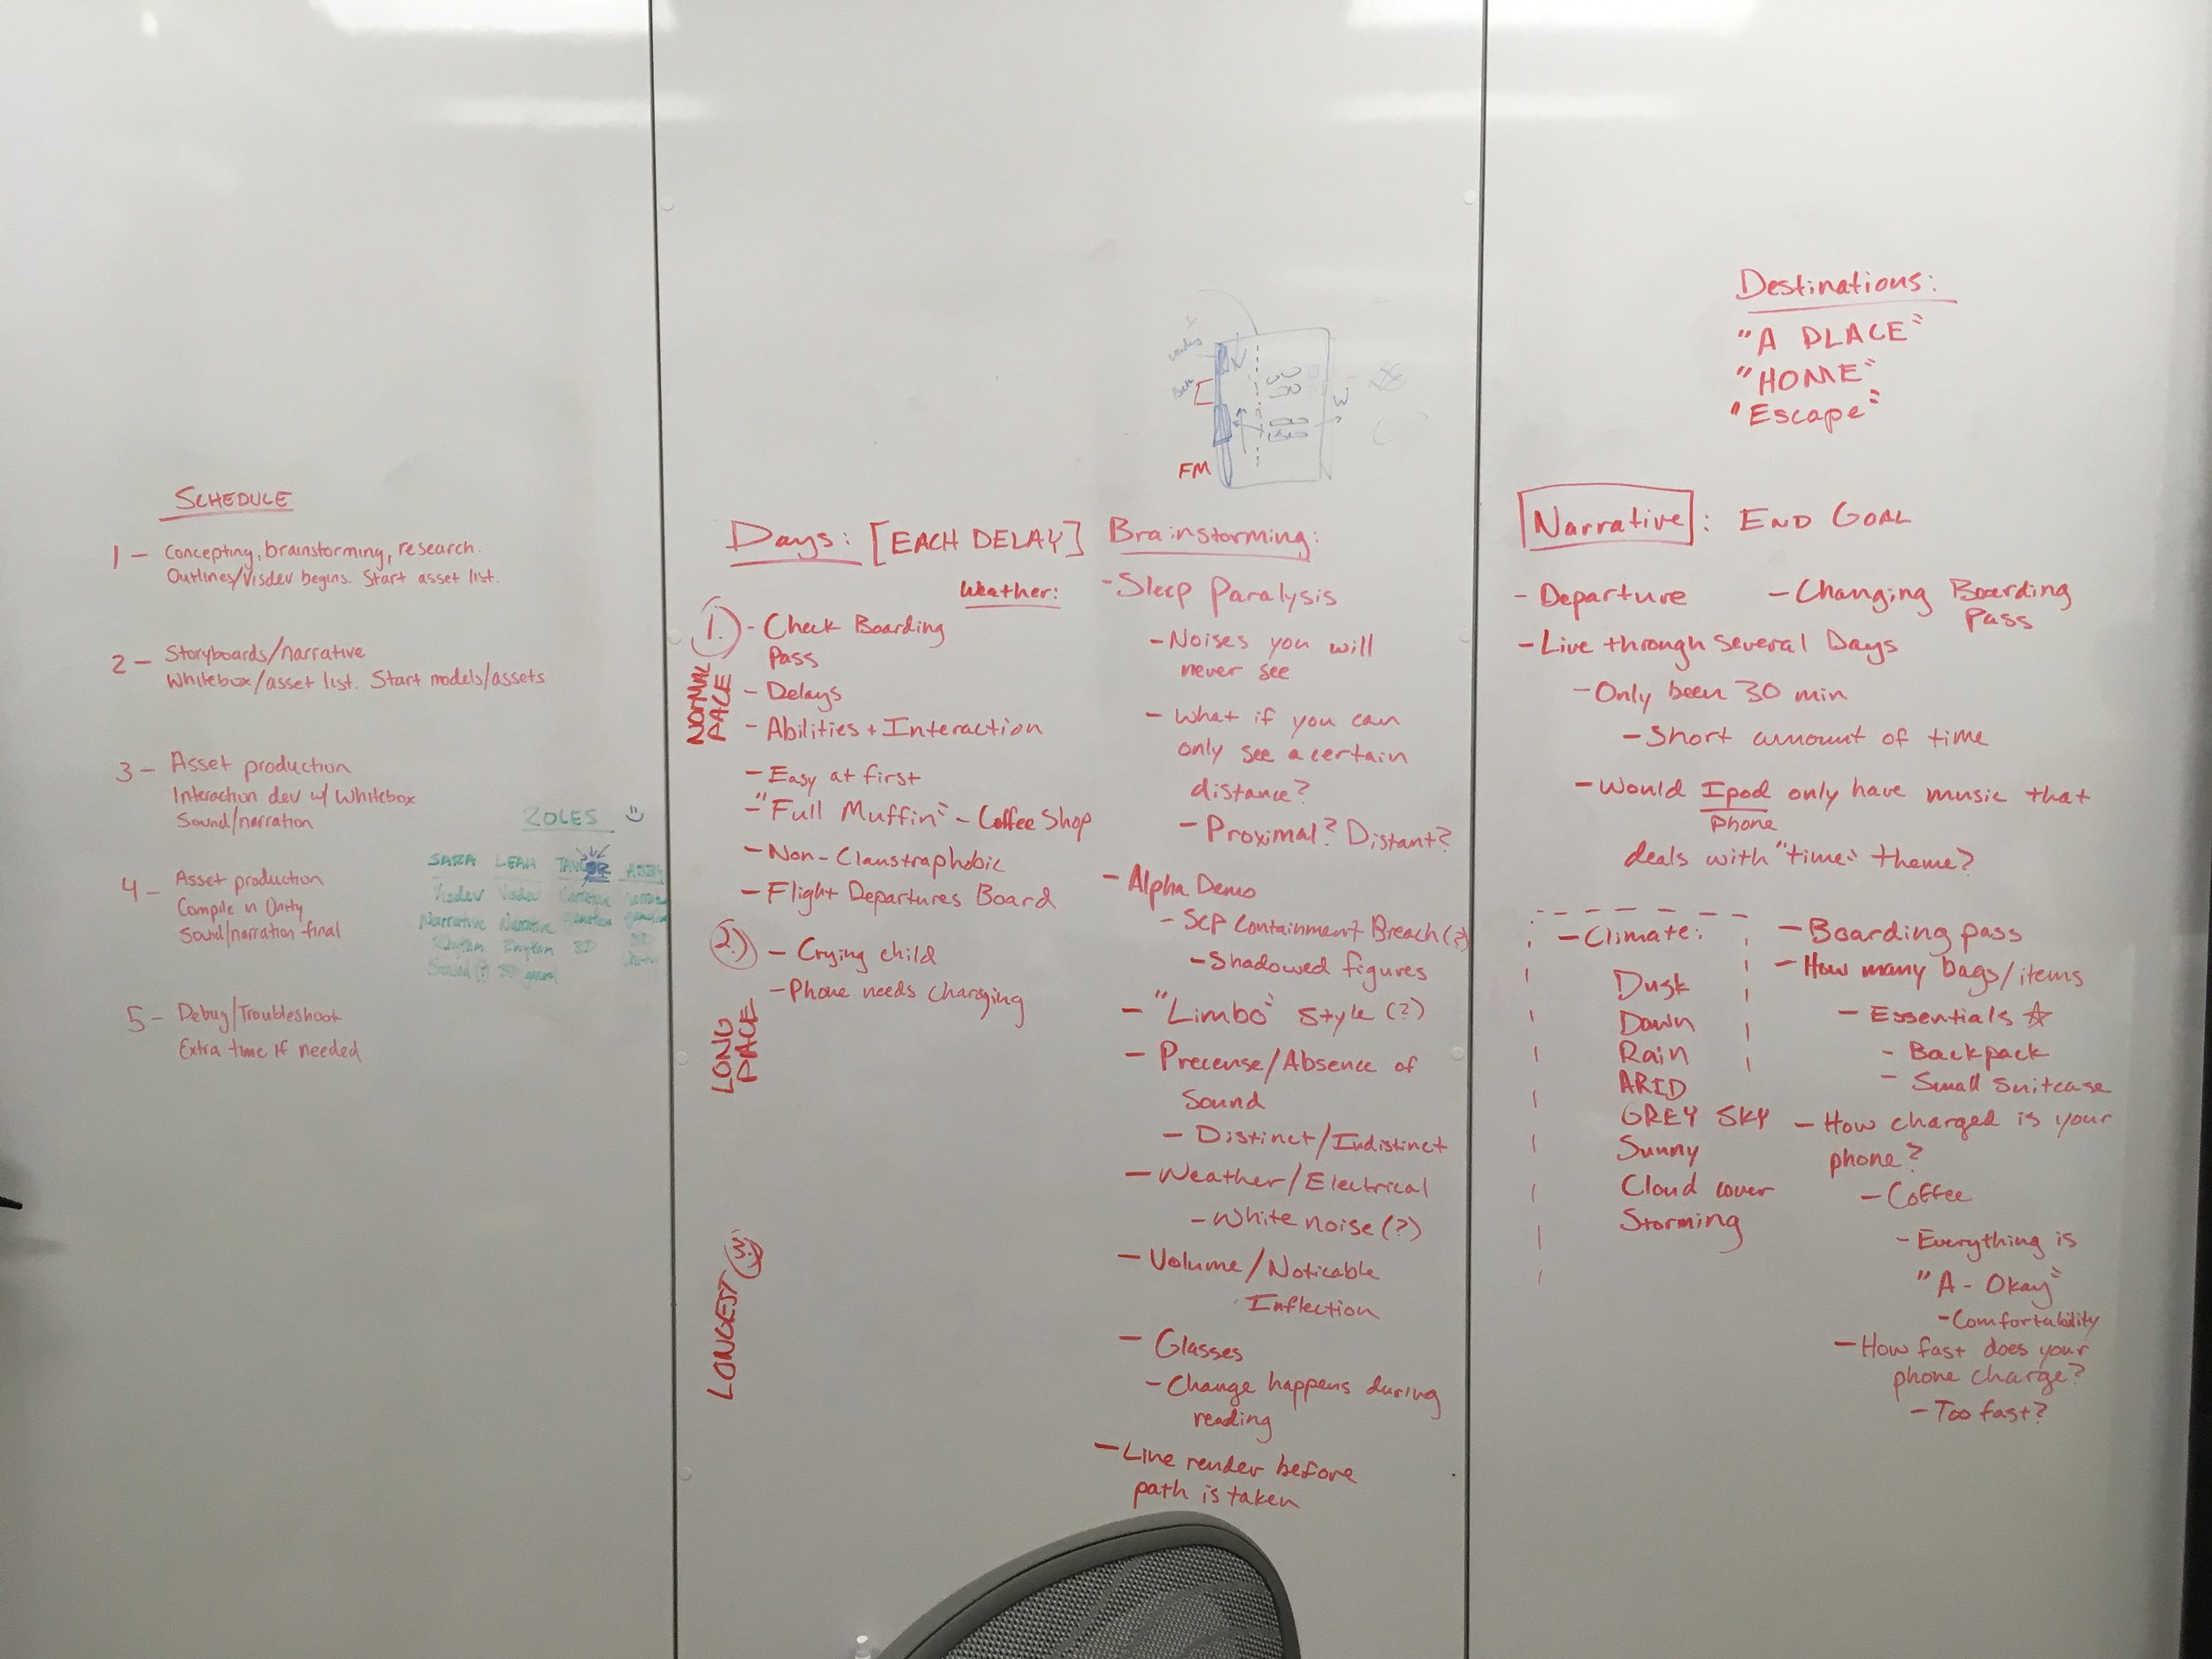 SCHEDULE
1 - Concepting, brainstorming, research.
Outlines/Visdev begins. Start asset list.
2 - Storyboards/narrative
Whitebox/asset list. Start models/assets
3 - Asset production
Interaction dev w/ Whitebox
Sound/narration
4 - Asset production
Compile in Unity
Sound/narration final
5 - Debug/Troubleshoot
Extra time if needed
ZOLES
SARA LEAH
Visdev Visdev
Narrative Narrative
Rhythm Rhythm 3D 3D
Sound(?) 3D
FM
Days: [EACH DELAY]
Weather:
1.) - Check Boarding
Pass
- Delays
- Abilities + Interaction
- Easy at first
- "Full Muffin" - Coffee Shop
- Non-Claustraphobic
- Flight Departures Board
NORMAL
PACE
2.) - Crying child
- Phone needs charging
LONG
PACE
LONGEST
Brainstorming:
- Sleep Paralysis
- Noises you will
never see
- What if you can
only see a certain
distance?
- Proximal? Distant?
- Alpha Demo
- SCP Containment Breach(?)
- Shadowed figures
- "Limbo" style (?)
- Precense/Absence of
Sound
- Distinct/Indistinct
- Weather/Electrical
- White noise (?)
- Volume/Noticable
Inflection
- Glasses
- Change happens during
reading
- Line render before
path is taken
Destinations:
"A PLACE"
"HOME"
"Escape"
Narrative: END GOAL
- Departure - Changing Boarding
Pass
- Live through several Days
- Only been 30 min
- Short amount of time
- Would Ipod only have music that
Phone
deals with "time" theme?
- Climate:
Dusk
Dawn
Rain
ARID
GREY SKY
Sunny
Cloud cover
Storming
- Boarding pass
- How many bags/items
- Essentials
- Backpack
- Small suitcase
- How charged is your
phone?
- Coffee
- Everything is
"A-Okay"
- Comfortability
- How fast does your
phone charge?
- Too fast?